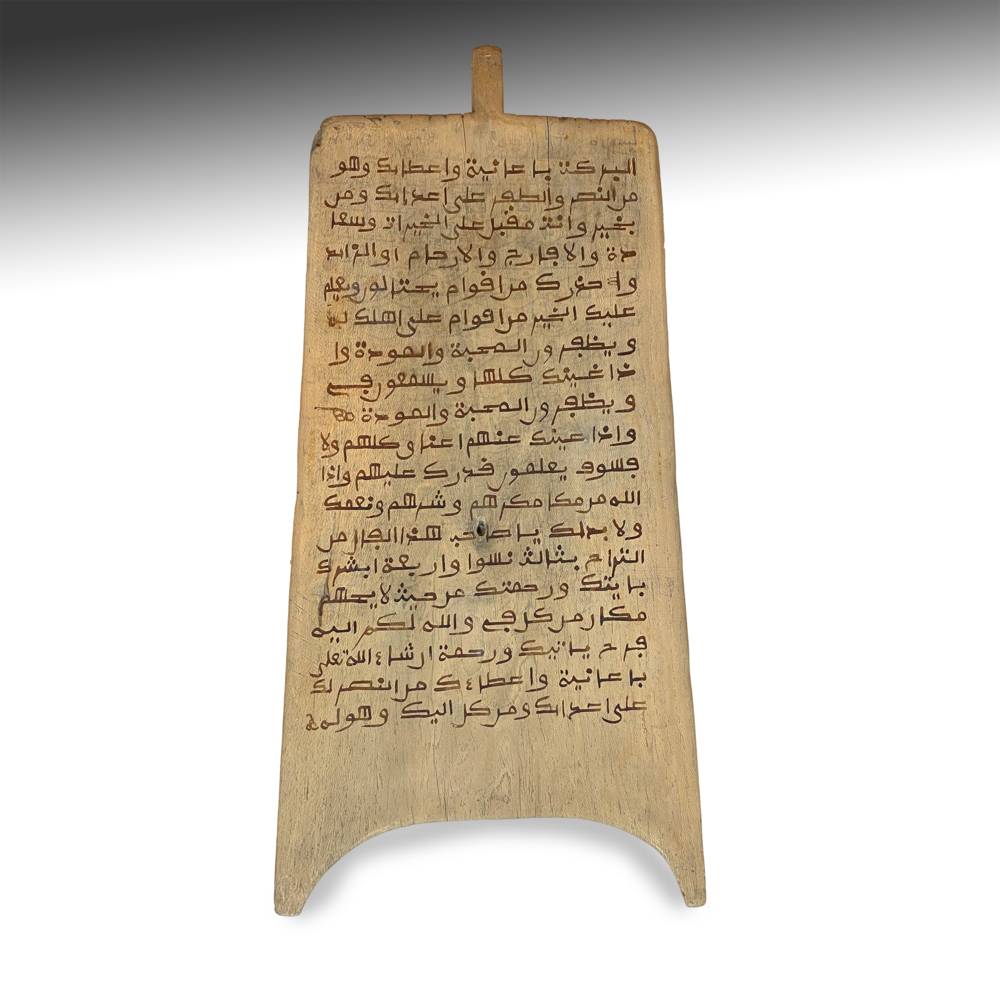 البركة با عانية واعطاك وهو
من النصر والظفر على اعدائك ومن
بخير وانت مقبل على الخيرات وسعا
دة والاقارج والارحام او الزائد
واحذرك من اقوام يحتالون ويعلم
عليك الخير من اقوام على اهلك
ويظفرون المحبة والمودة وا
ذا غيبك كلها ويسمعون في
ويظفرون المحبة والمودة
واذا عينك عنهم اعنا وكلهم ولا
فسوف يعلمون قدرك عليهم واذا
الله من مكا مكرهم وشرهم ونعمك
ولا بدلك يا صاحب هذا الفال من
التراح بثالث نسوا واربعة ابشرك
باينك ورحمتك من حيث لا يحهم
مكان من كل في والله لكم اليه
فرح ياتيك ورحمة ان شاء الله تعلى
با عانية واعطاءك من النصر لك
على اعدائك ومن كل اليك وهو